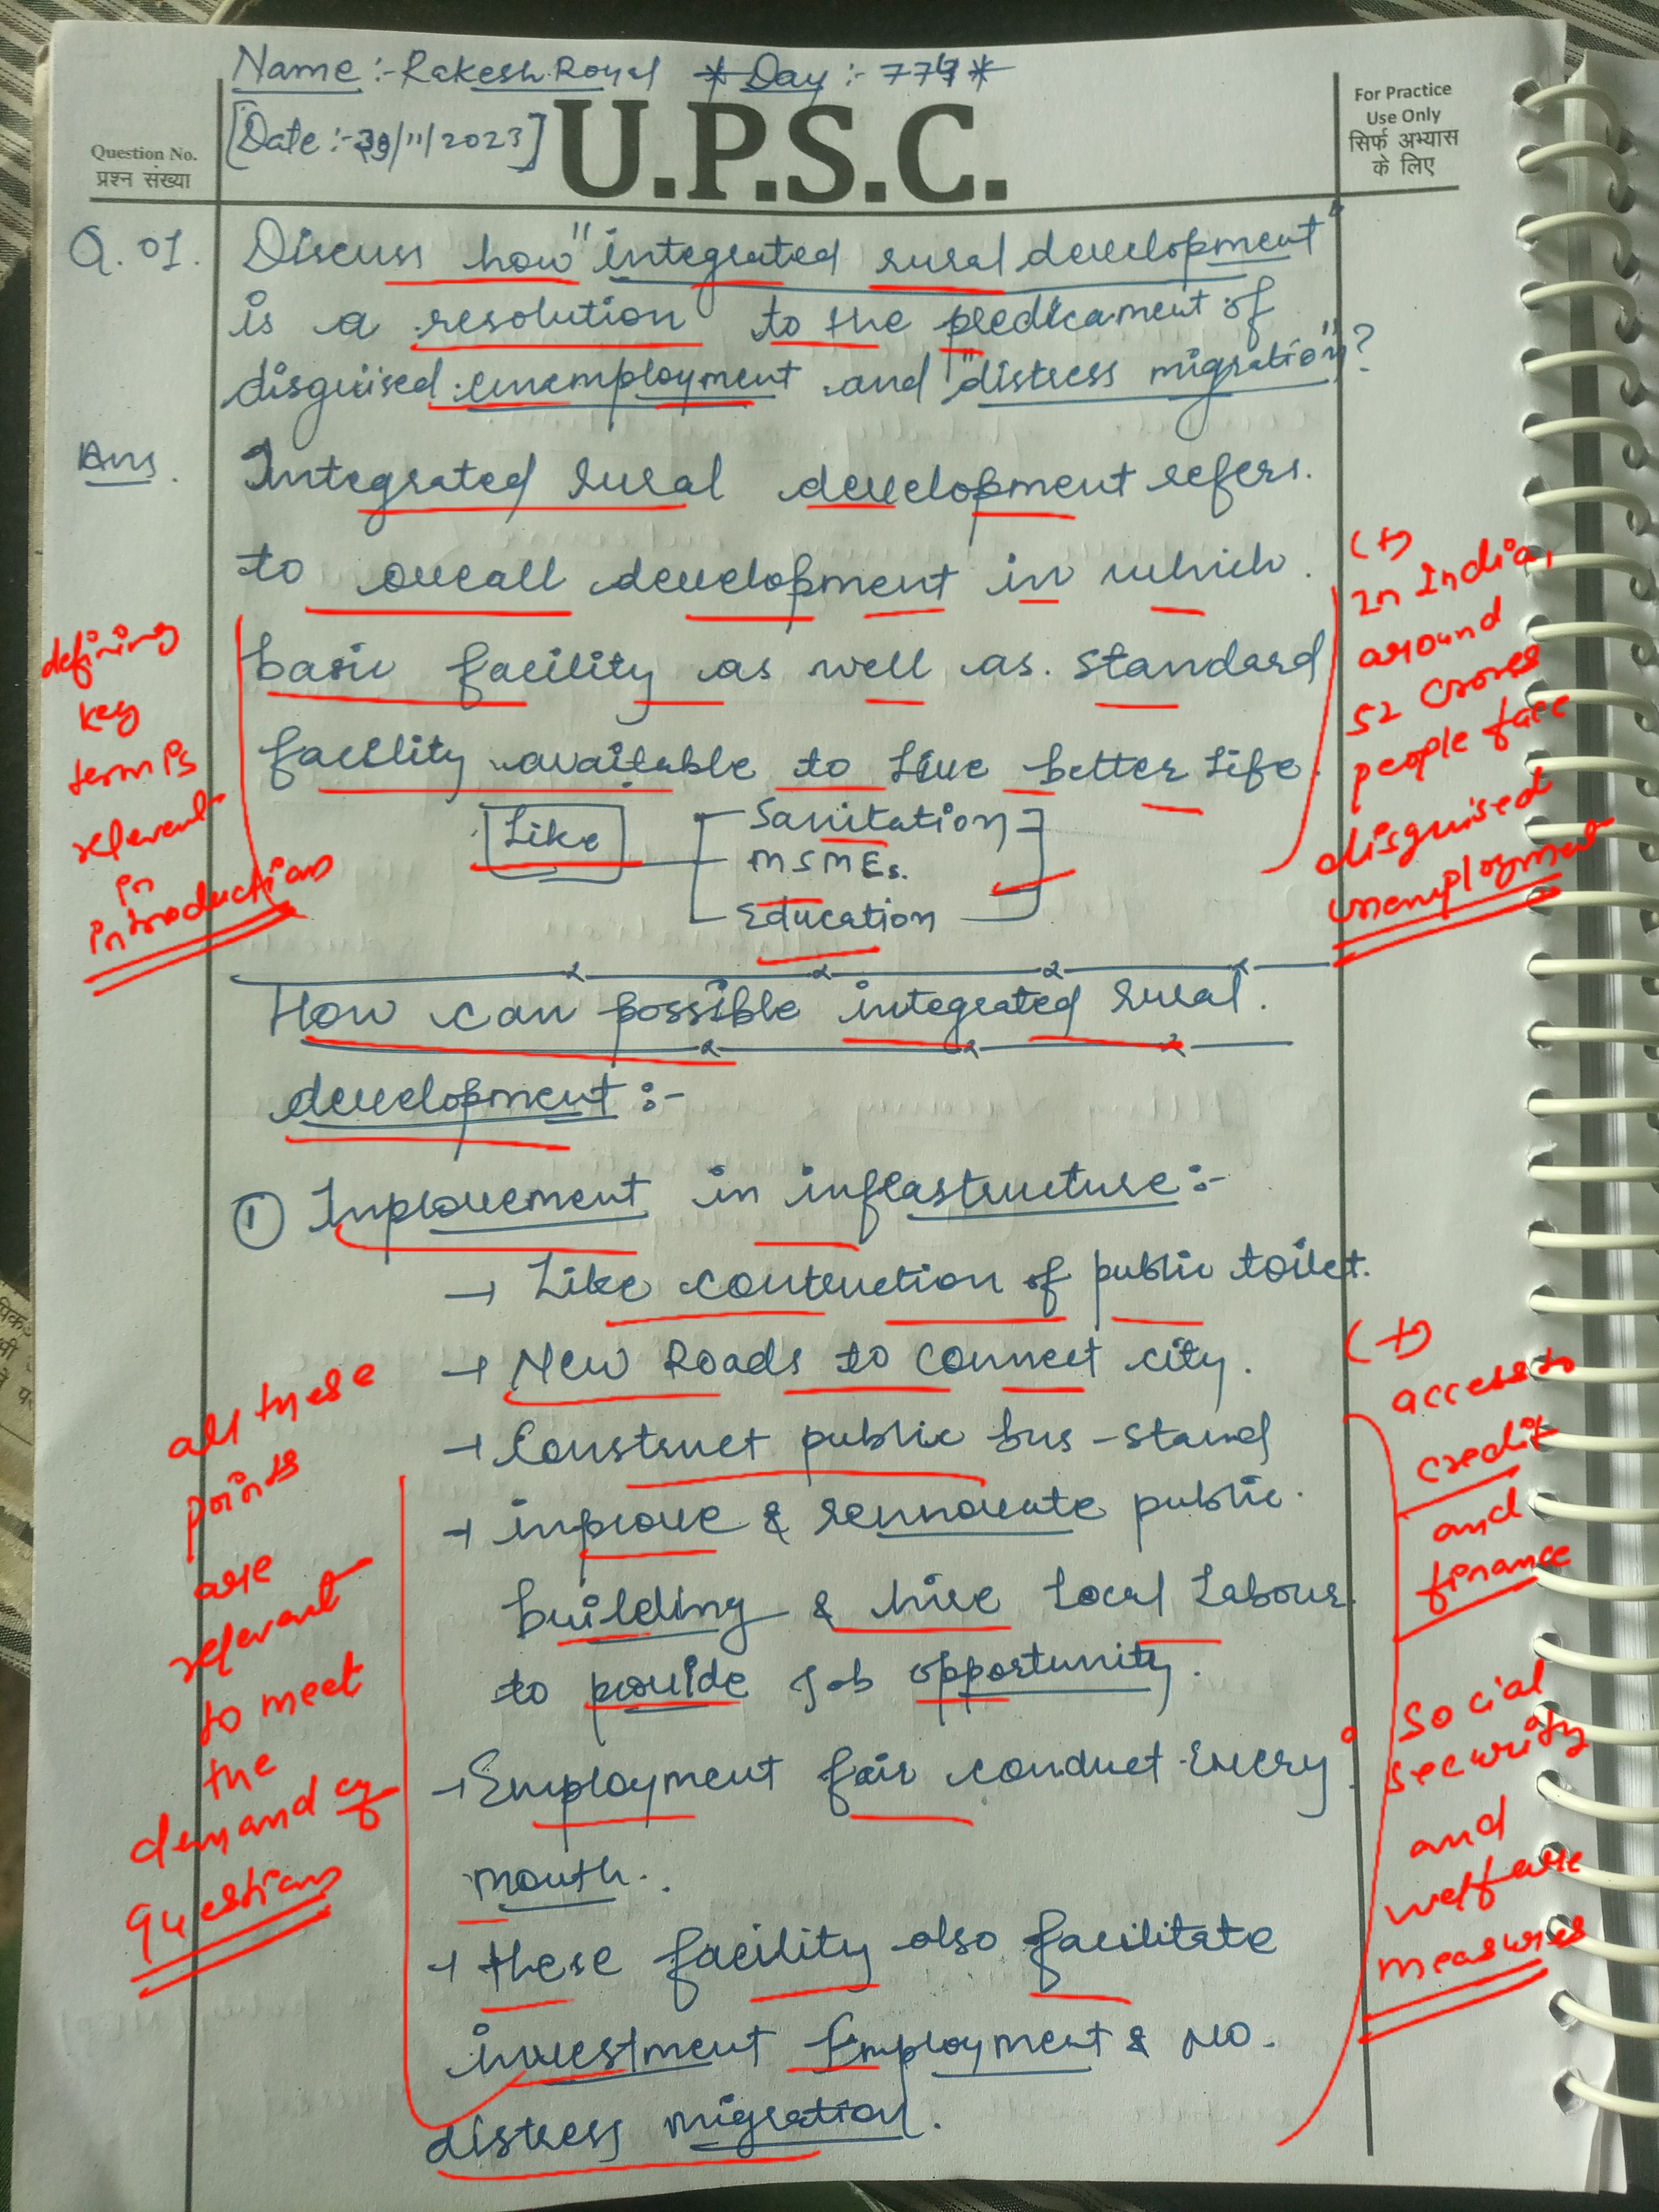 Name :- Rakesh Royal * Day :- 774 *
[Date :- 30/11/2023]
U.P.S.C.
For Practice
Use Only
सिर्फ अभ्यास
के लिए
Question No.
प्रश्न संख्या
Q. 01. Discuss how "integrated rural development"
is a resolution to the predicament of
disguised unemployment and "distress migration"?
Ans. Integrated rural development refers.
to overall development in which.
basic facility as well as. standard
facility available to live better life.
Like
Sanitation
MSMEs.
Education
defining
key
term is
relevant
in
introduction
(+)
In India,
around
52 crores
people face
disguised
unemployment
How can possible integrated rural.
development :-
① Inprovement in infrastructure :-
→ Like contruction of public toilet.
→ New Roads to connect city.
→ Construct public bus-stand
→ inprove & rennovate public.
building & hire Local Labour.
to provide Job opportunity.
→ Employment fair conduct Every
month..
→ these facility also facilitate
investment Employment & No.
distress migration.
all these
points
are
relevant
to meet
the
demand of
questions
(+)
access to
credit
and
finance
Social
security
and
welfare
measures